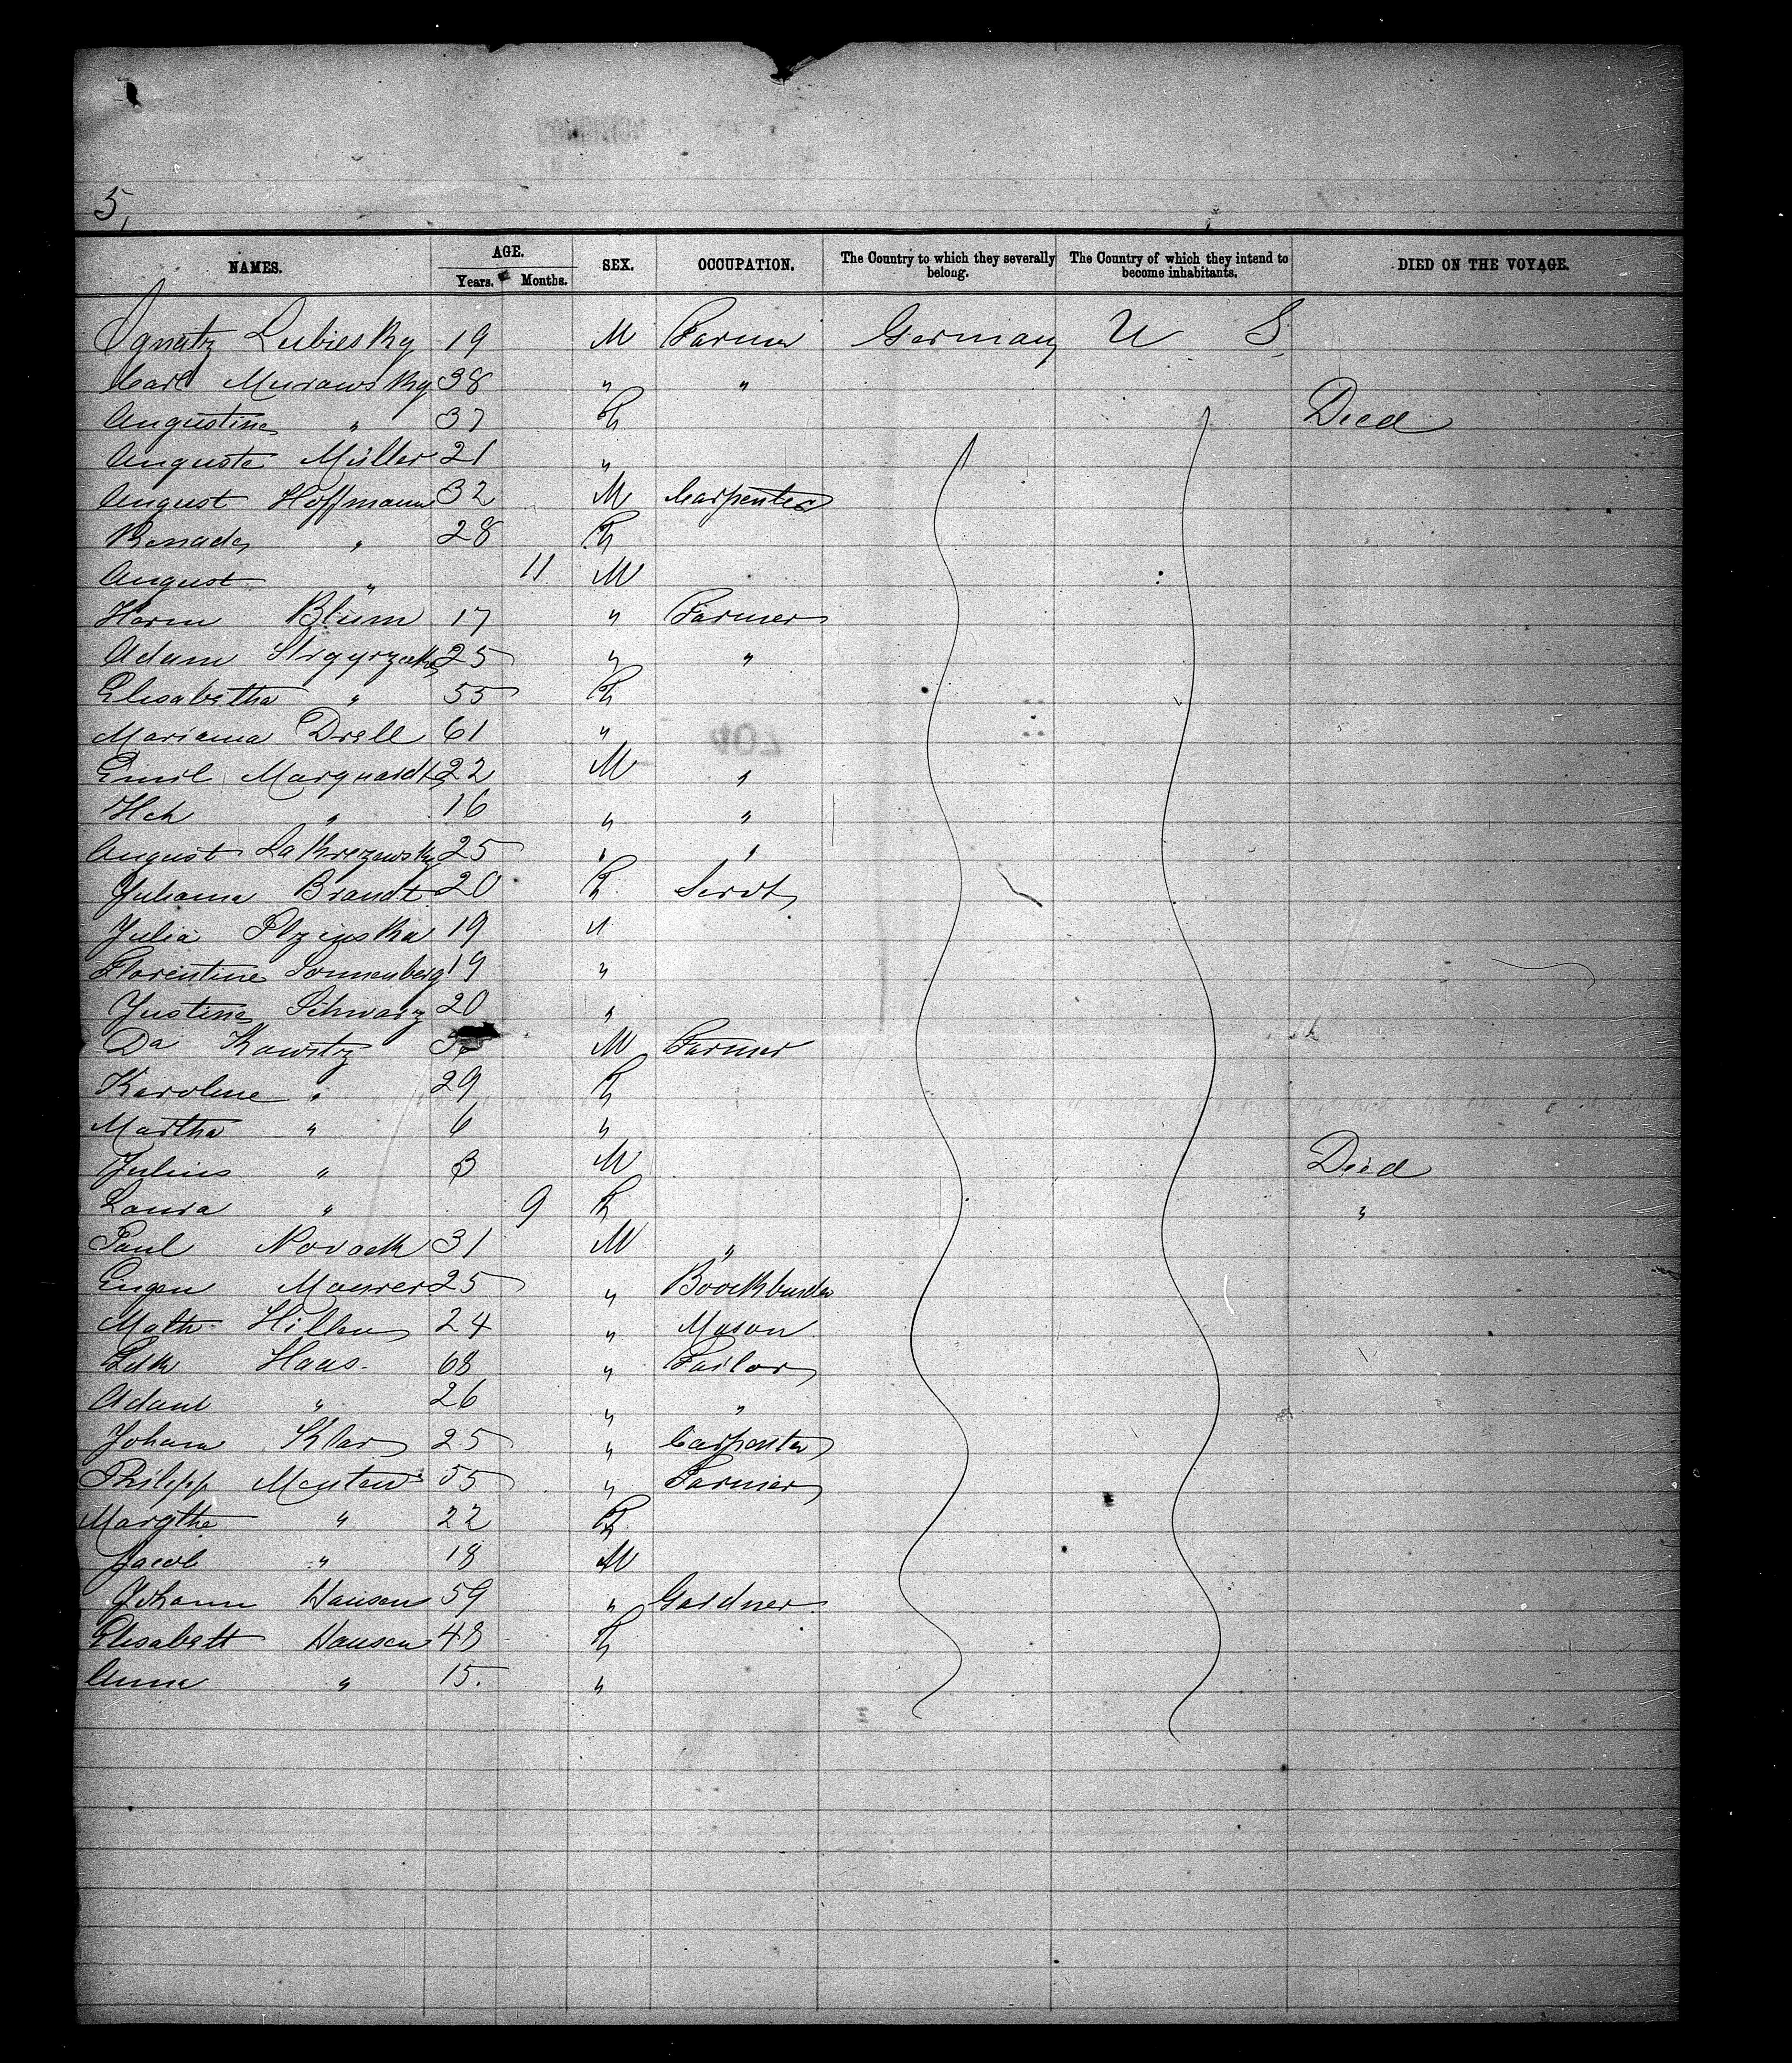 5,
NAMES. AGE. Years. Months. SEX. OCCUPATION. The Country to which they severally belong. The Country of which they intend to become inhabitants. DIED ON THE VOYAGE.
Ignatz Lubiesky 19 M Farmer Germany U S
Carl Murawsky 38 " "
Augustine " 37 F Died
Auguste Müller 21 "
August Hoffmann 32 M Carpenter
" 28 F
August " 11 M
Herm Blum 17 " Farmer
Adam 25 " "
Elisabetha " 55 F
Marianna Drell 61 "
Emil Marquardt 22 M "
Hch " 16 " "
August 25 " "
Juliana Brandt 20 F Servt
Julia 19 "
Florentine Sonnenberg 19 "
Justine Schwarz 20 "
Da Kawitz M Farmer
Karoline " 29 F
Martha " 6 "
Julius " 3 M Died
Laura " 9 F "
Paul Novack 31 M "
Eugen Maurer 25 " Boockbinder
Math Hillen 24 " Mason
Haas 68 " Tailor
Adam " 26 " "
Johann Klar 25 " Carpenter
Philipp Menten 55 " Farmer
Margthe " 22 F
Jacob " 18 M
Johann Hansen 59 " Gardner
Elisabeth Hansen 48 F
Anna " 15. "